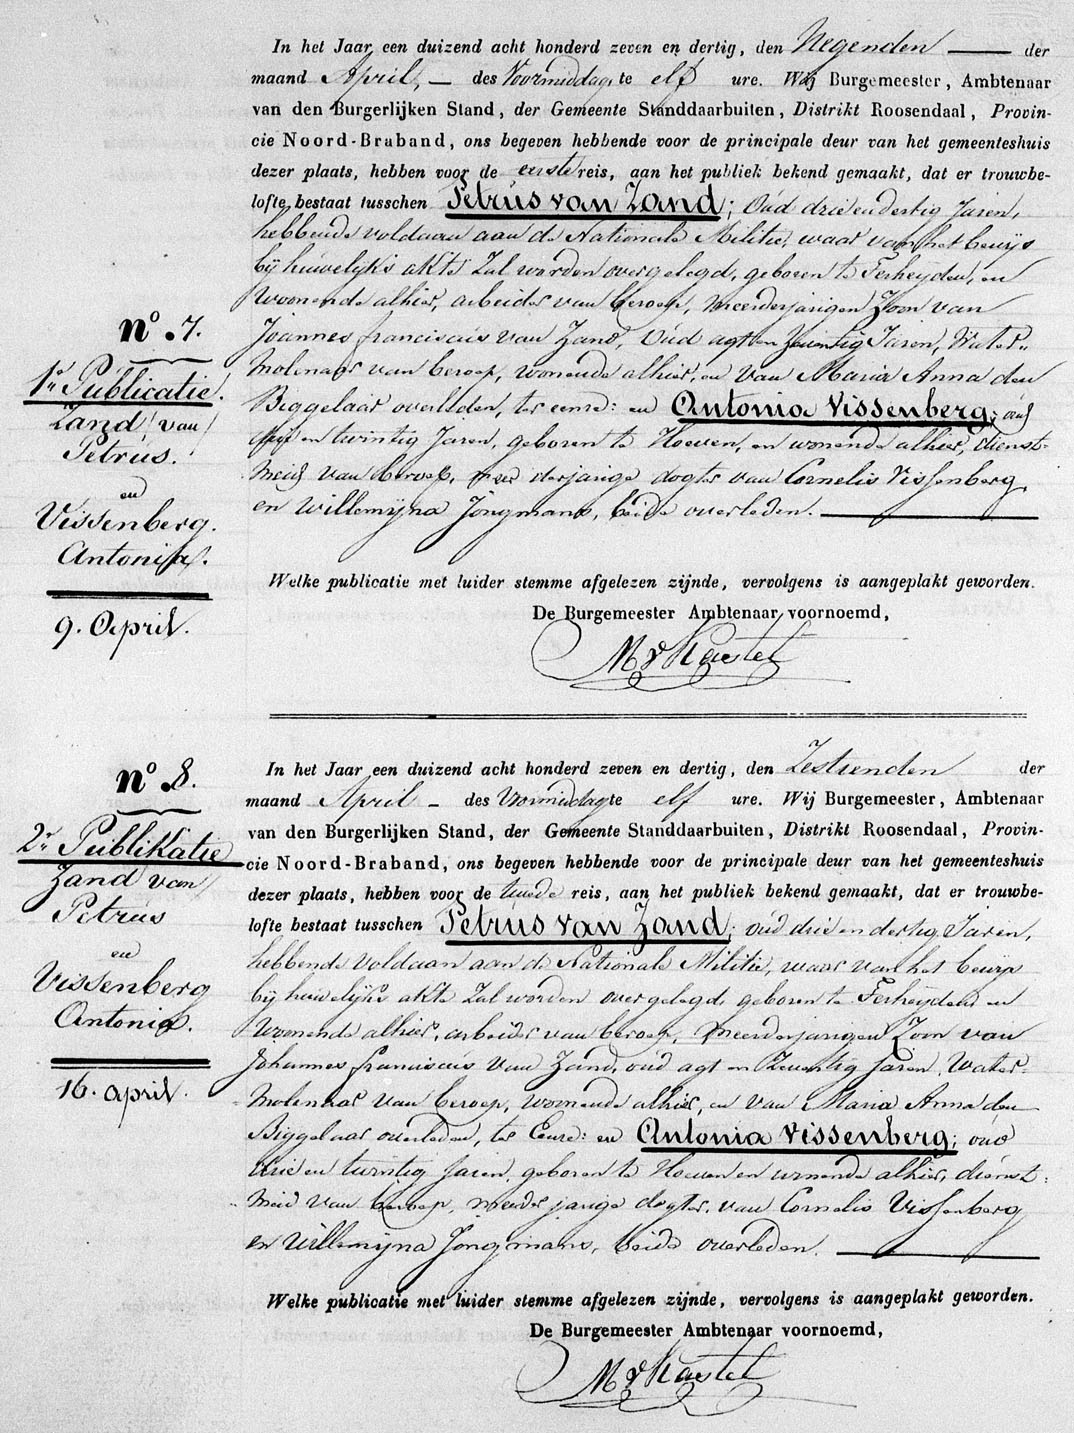 In het Jaar een duizend acht honderd zeven en dertig, den Negenden der
maand April, des Voormiddags te elf ure. Wij Burgemeester, Ambtenaar
van den Burgerlijken Stand, der Gemeente Standdaarbuiten, Distrikt Roosendaal, Provin-
cie Noord-Braband, ons begeven hebbende voor de principale deur van het gemeenteshuis
dezer plaats, hebben voor de eerste reis, aan het publiek bekend gemaakt, dat er trouwbe-
lofte bestaat tusschen Petrus van Zand; Oud drie en dertig Jaren,
hebbende voldaan aan de Nationale Militie, waar van het bewijs
bij huwelijks akte Zal worden overgelegd, geboren te Terheyden, en
Woonende alhier, arbeider van beroep, meerderjarigen Zoon van
Joannes franciscus van Zand, Oud agt en Zeventig Jaren, Water-
molenaar van beroep, wonende alhier, en van Maria Anna den
Biggelaar overleden, ter eenre: en Antonia Vissenberg; oud
en twintig Jaren, geboren te Hoeven, en wonende alhier, dienst-
meid van beroep, meerderjarige dogter van Cornelis Vissenberg,
en Willemijna Jongmans, beide overleden.
nº. 7.
1e Publicatie.
Zand, van
Petrus.
en
Vissenberg.
Antonija.
9. April.
Welke publicatie met luider stemme afgelezen zijnde, vervolgens is aangeplakt geworden.
De Burgemeester Ambtenaar voornoemd,
M v Kastel
In het Jaar een duizend acht honderd zeven en dertig, den Zestienden der
maand April des Vormiddag te elf ure. Wij Burgemeester, Ambtenaar
van den Burgerlijken Stand, der Gemeente Standdaarbuiten, Distrikt Roosendaal, Provin-
cie Noord-Braband, ons begeven hebbende voor de principale deur van het gemeenteshuis
dezer plaats, hebben voor de tweede reis, aan het publiek bekend gemaakt, dat er trouwbe-
lofte bestaat tusschen Petrus van Zand; oud drie en dertig Jaren,
hebbende voldaan aan de Nationale Militie, waar van het bewijs
bij huwelijks akte Zal worden overgelegd, geboren te Terheyden en
Woonende alhier, arbeider van beroep, meerderjarigen Zoon van
Johannes franciscus van Zand, oud agt en Zeventig Jaren, Water-
molenaar van beroep, woonende alhier, en van Maria Anna den
Biggelaar overleden, ter Eenre: en Antonia Vissenberg; oud
drie en twintig Jaren, geboren te Hoeven en wonende alhier, dienst-
meid van beroep, meerderjarige dogter, van Cornelis Vissenberg
en Willemijna Jongmans, beide overleden.
nº. 8.
2e Publikatie
Zand van
Petrus
en
Vissenberg
Antonia.
16. april.
Welke publicatie met luider stemme afgelezen zijnde, vervolgens is aangeplakt geworden.
De Burgemeester Ambtenaar voornoemd,
M v Kastel